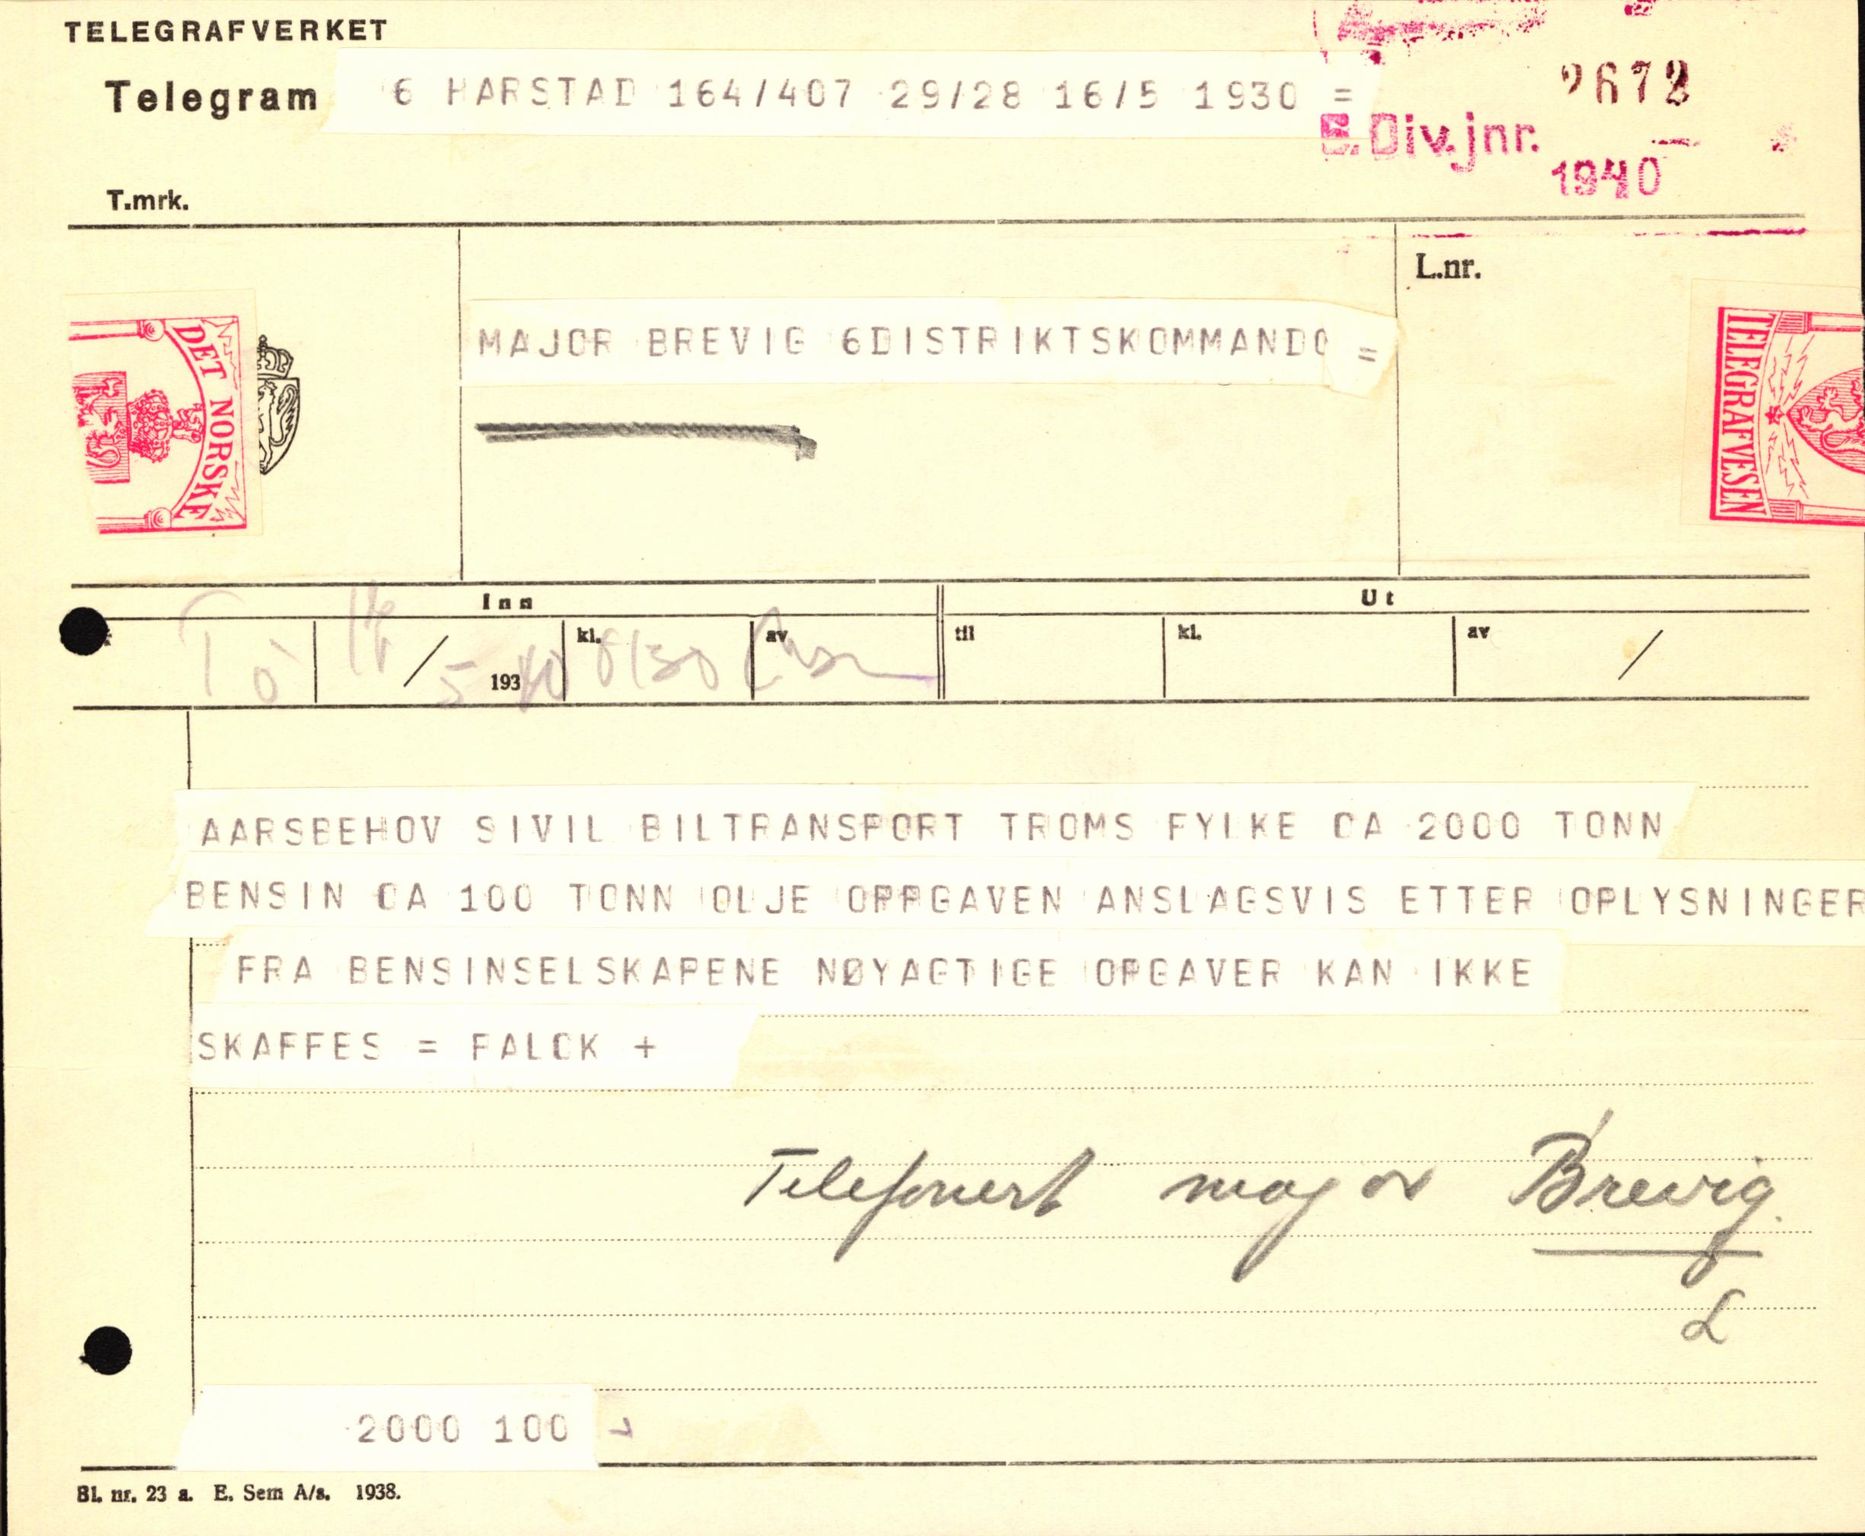 TELEGRAFVERKET
Telegram 6 HARSTAD 164/407 29/28 16/5 1930 =
2672
6.Div.jnr.
1940
T.mrk.
L.nr.
MAJOR BREVIG 6DISTRIKTSKOMMANDO =
DET NORSKE
TELEGRAFVESEN
Inn
Ut
kl. av til kl. av
/ 5 193 40 8/30 /
AARSBEHOV SIVIL BILTRANSPORT TROMS FYLKE CA 2000 TONN
BENSIN CA 100 TONN OLJE OPPGAVEN ANSLAGSVIS ETTER OPLYSNINGER
FRA BENSINSELSKAPENE NØYAGTIGE OPGAVER KAN IKKE
SKAFFES = FALCK +
Telefonert major Brevig.
L
2000 100
Bl. nr. 23 a. E. Sem A/s. 1938.